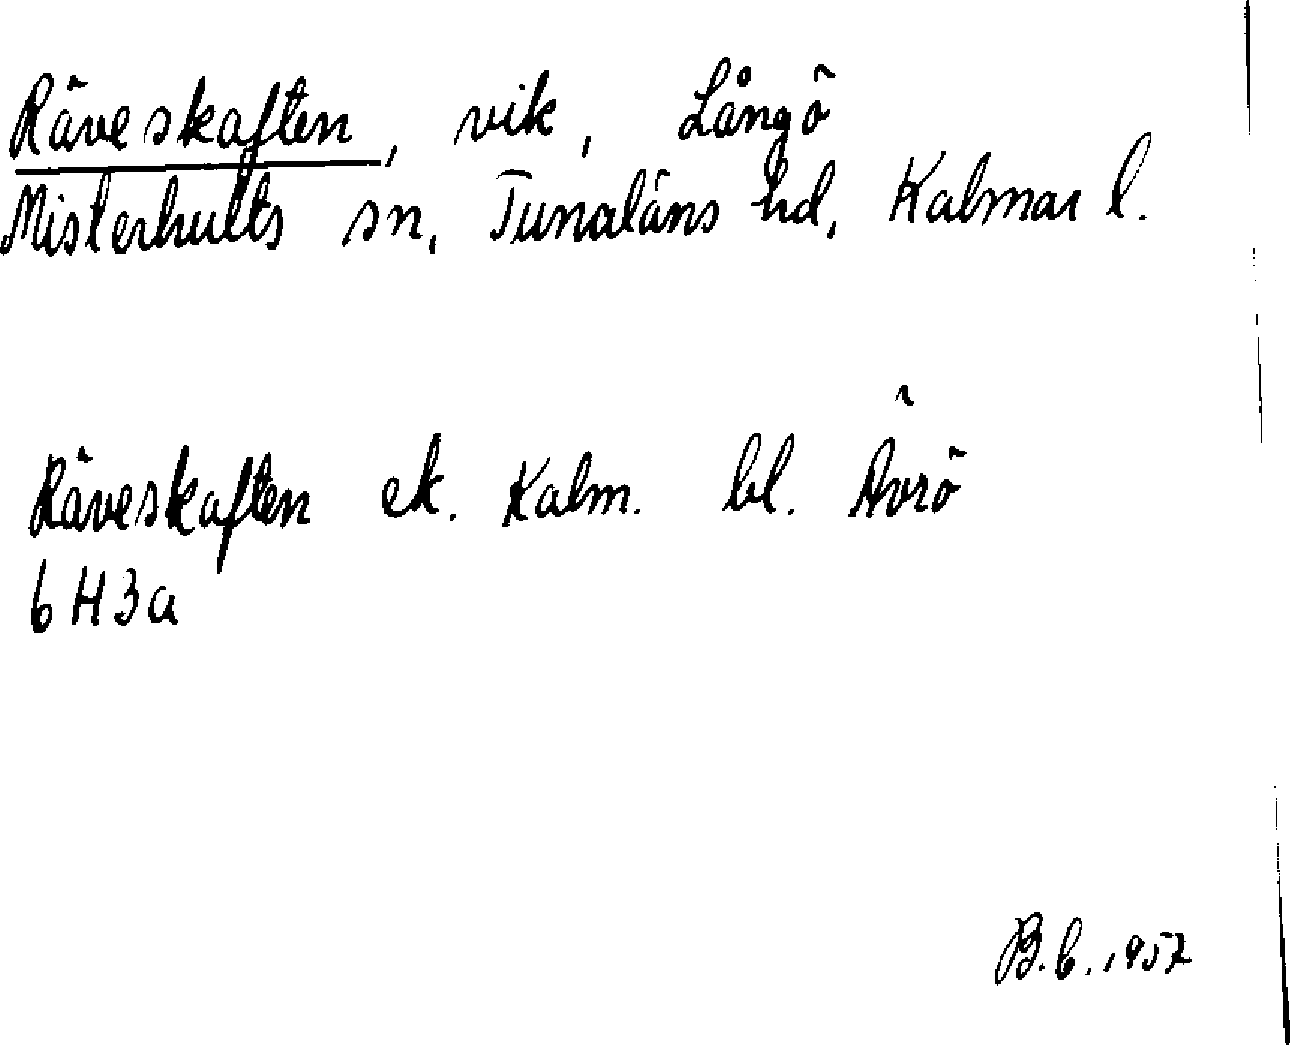 Räveskaften, vik, Långö
Misterhults sn, Tunaläns hd, Kalmar l.
Räveskaften ek. Kalm. bl. Ävrö
6H3a
B.C. 1957